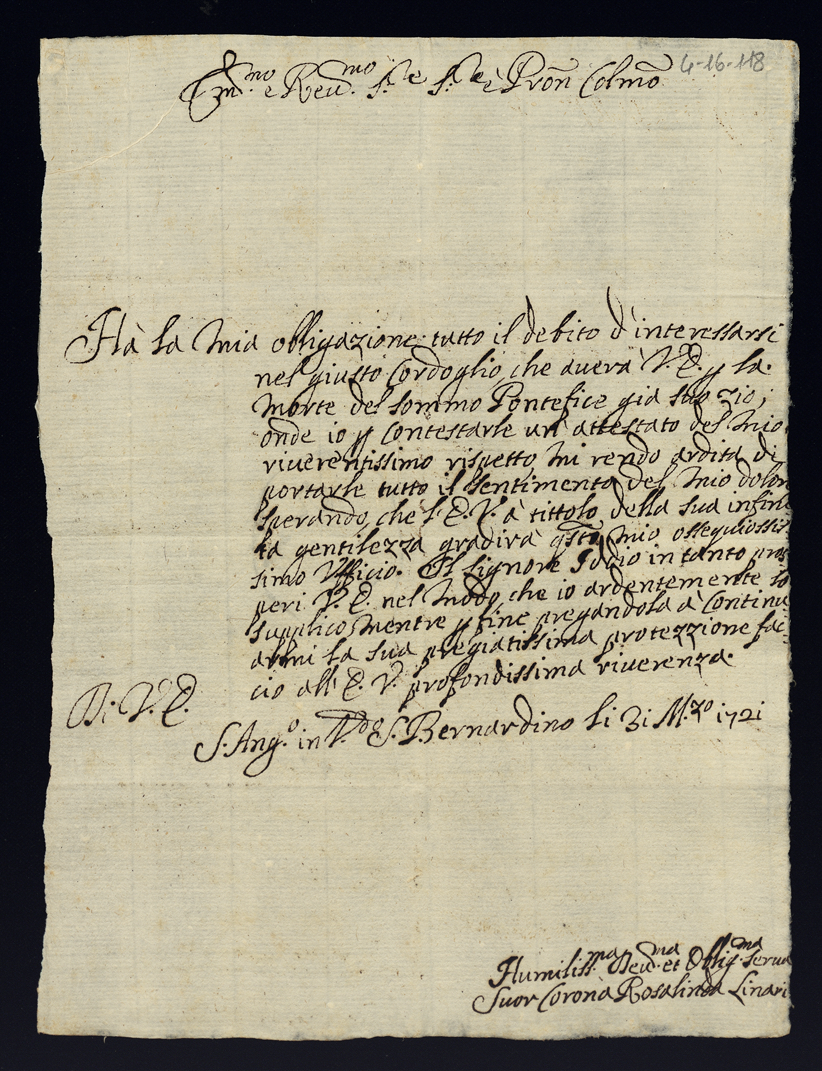 Em.mo e Reu.mo S.re S.re e Pron Colmo
4-16-118
Hà la mia obligazione tutto il debito d'interessarsi
nel giusto Cordoglio, che auerà V. E. p la
morte del sommo Pontefice gia suo zio,
onde io p contestarle un attestato del mio
riuerentissimo rispetto mi rendo ardita di
portarle tutto il sentimento del mio dolor
sperando, che l'E. V. à tittolo della sua infini
ta gentilezza gradirà qsto mio ossequiossis
simo Ufficio. Il Signore Iddio in tanto pros
peri V. E. nel modo, che io ardentemente lo
supplico, mentre p fine pregandola à Continu
armi la sua pregiatissima protezzione fac
cio all' E. V. profondissima riuerenza.
Di V. E.
S. Ang.o in V.do S. Bernardino li 31 M.zo 1721
Humiliss.ma Deu.ma et Oblig.ma serua
Suor Corona Rosalinda Linari